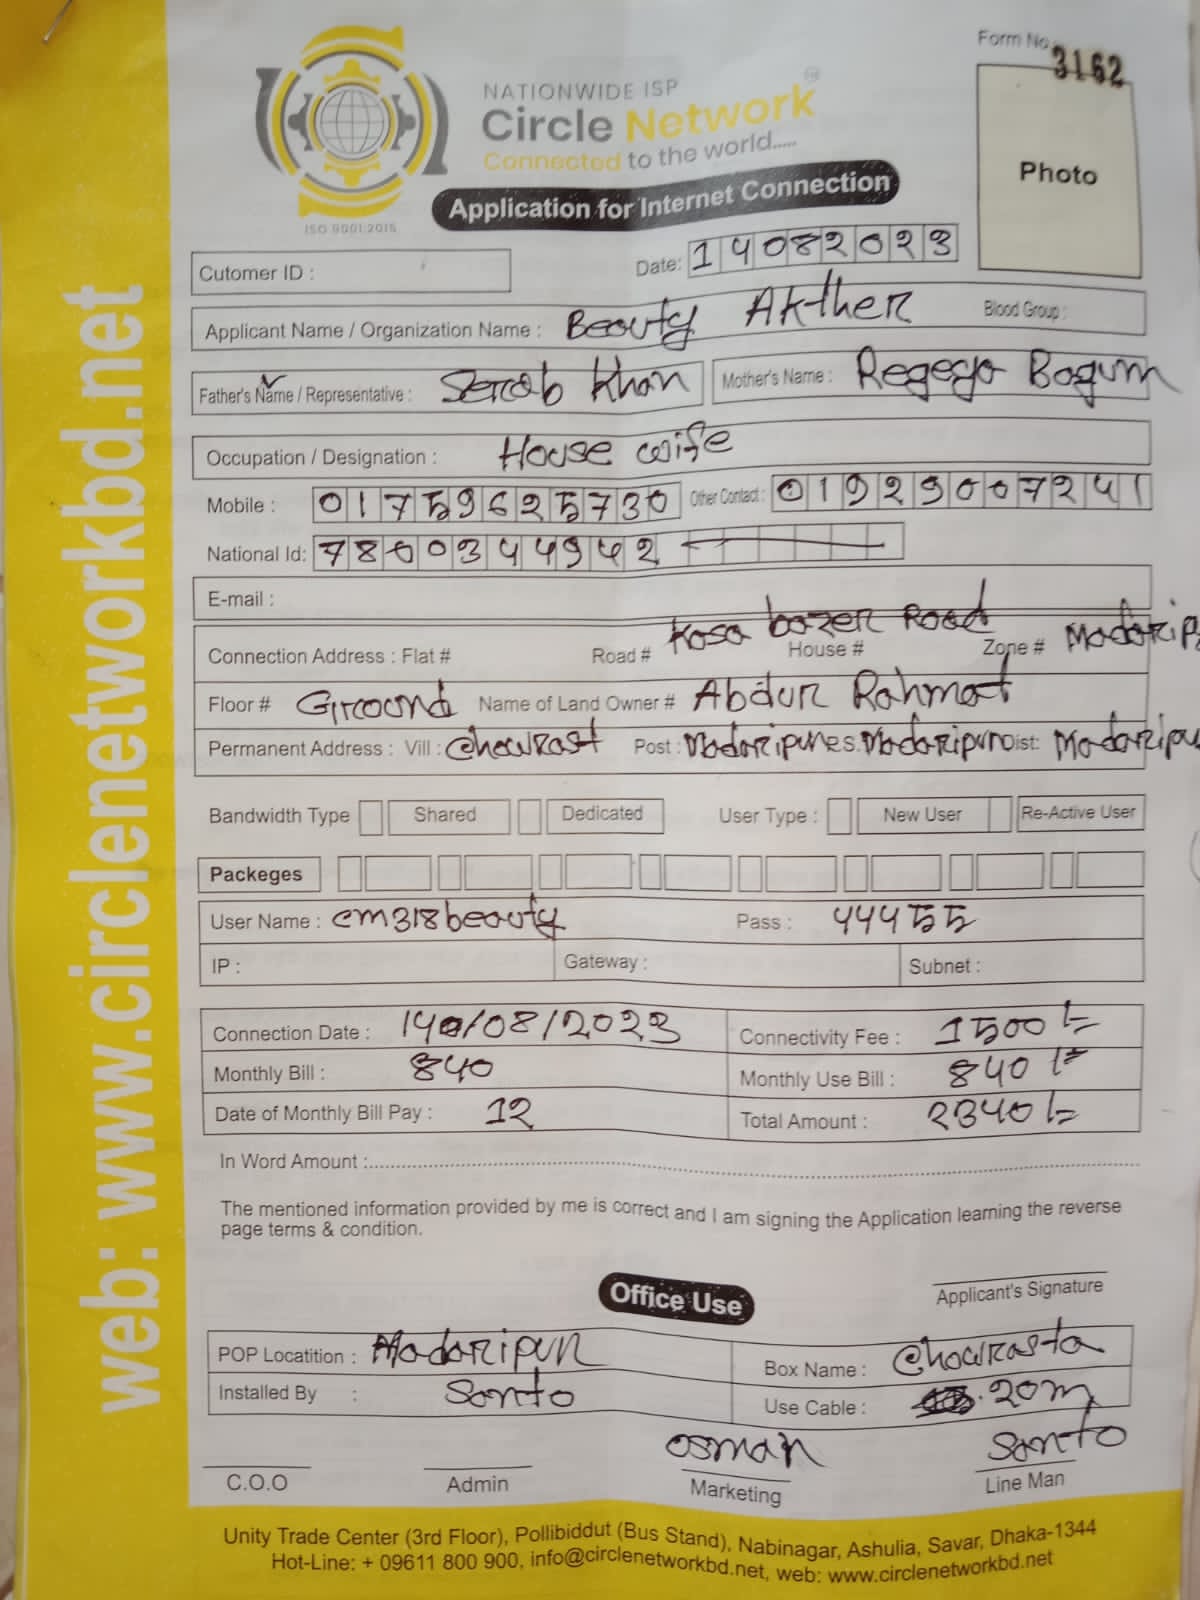 Form No. 3162
NATIONWIDE ISP
Circle Network
Connected to the world.....
ISO 9001:2015
Application for Internet Connection
Photo
Cutomer ID :
Date: 14082023
Applicant Name / Organization Name : Beauty Akther Blood Group :
Father's Name / Representative : Serab Khan Mother's Name : Regega Bogum
Occupation / Designation : House wife
Mobile : 01759625730 Other Contact : 01929007241
National Id: 7800344942
E-mail :
Connection Address : Flat # Road # Kosa bazer Road House # Zone # Madarip
Floor # Ground Name of Land Owner # Abdur Rahmat
Permanent Address : Vill : Chowrast Post : Madaripur P.S. Madaripur Dist: Madaripu
Bandwidth Type Shared Dedicated User Type : New User Re-Active User
Packeges
User Name : cm318beauty Pass : 44455
IP : Gateway : Subnet :
Connection Date : 14/08/2023 Connectivity Fee : 1500/=
Monthly Bill : 840 Monthly Use Bill : 840/=
Date of Monthly Bill Pay : 12 Total Amount : 2340/=
In Word Amount :
The mentioned information provided by me is correct and I am signing the Application learning the reverse
page terms & condition.
Applicant's Signature
Office Use
POP Locatition : Madaripur Box Name : Chowrasta
Installed By : Santo Use Cable : 20m
osman Santo
C.O.O Admin Marketing Line Man
Unity Trade Center (3rd Floor), Pollibiddut (Bus Stand), Nabinagar, Ashulia, Savar, Dhaka-1344
Hot-Line: + 09611 800 900, info@circlenetworkbd.net, web: www.circlenetworkbd.net
web: www.circlenetworkbd.net